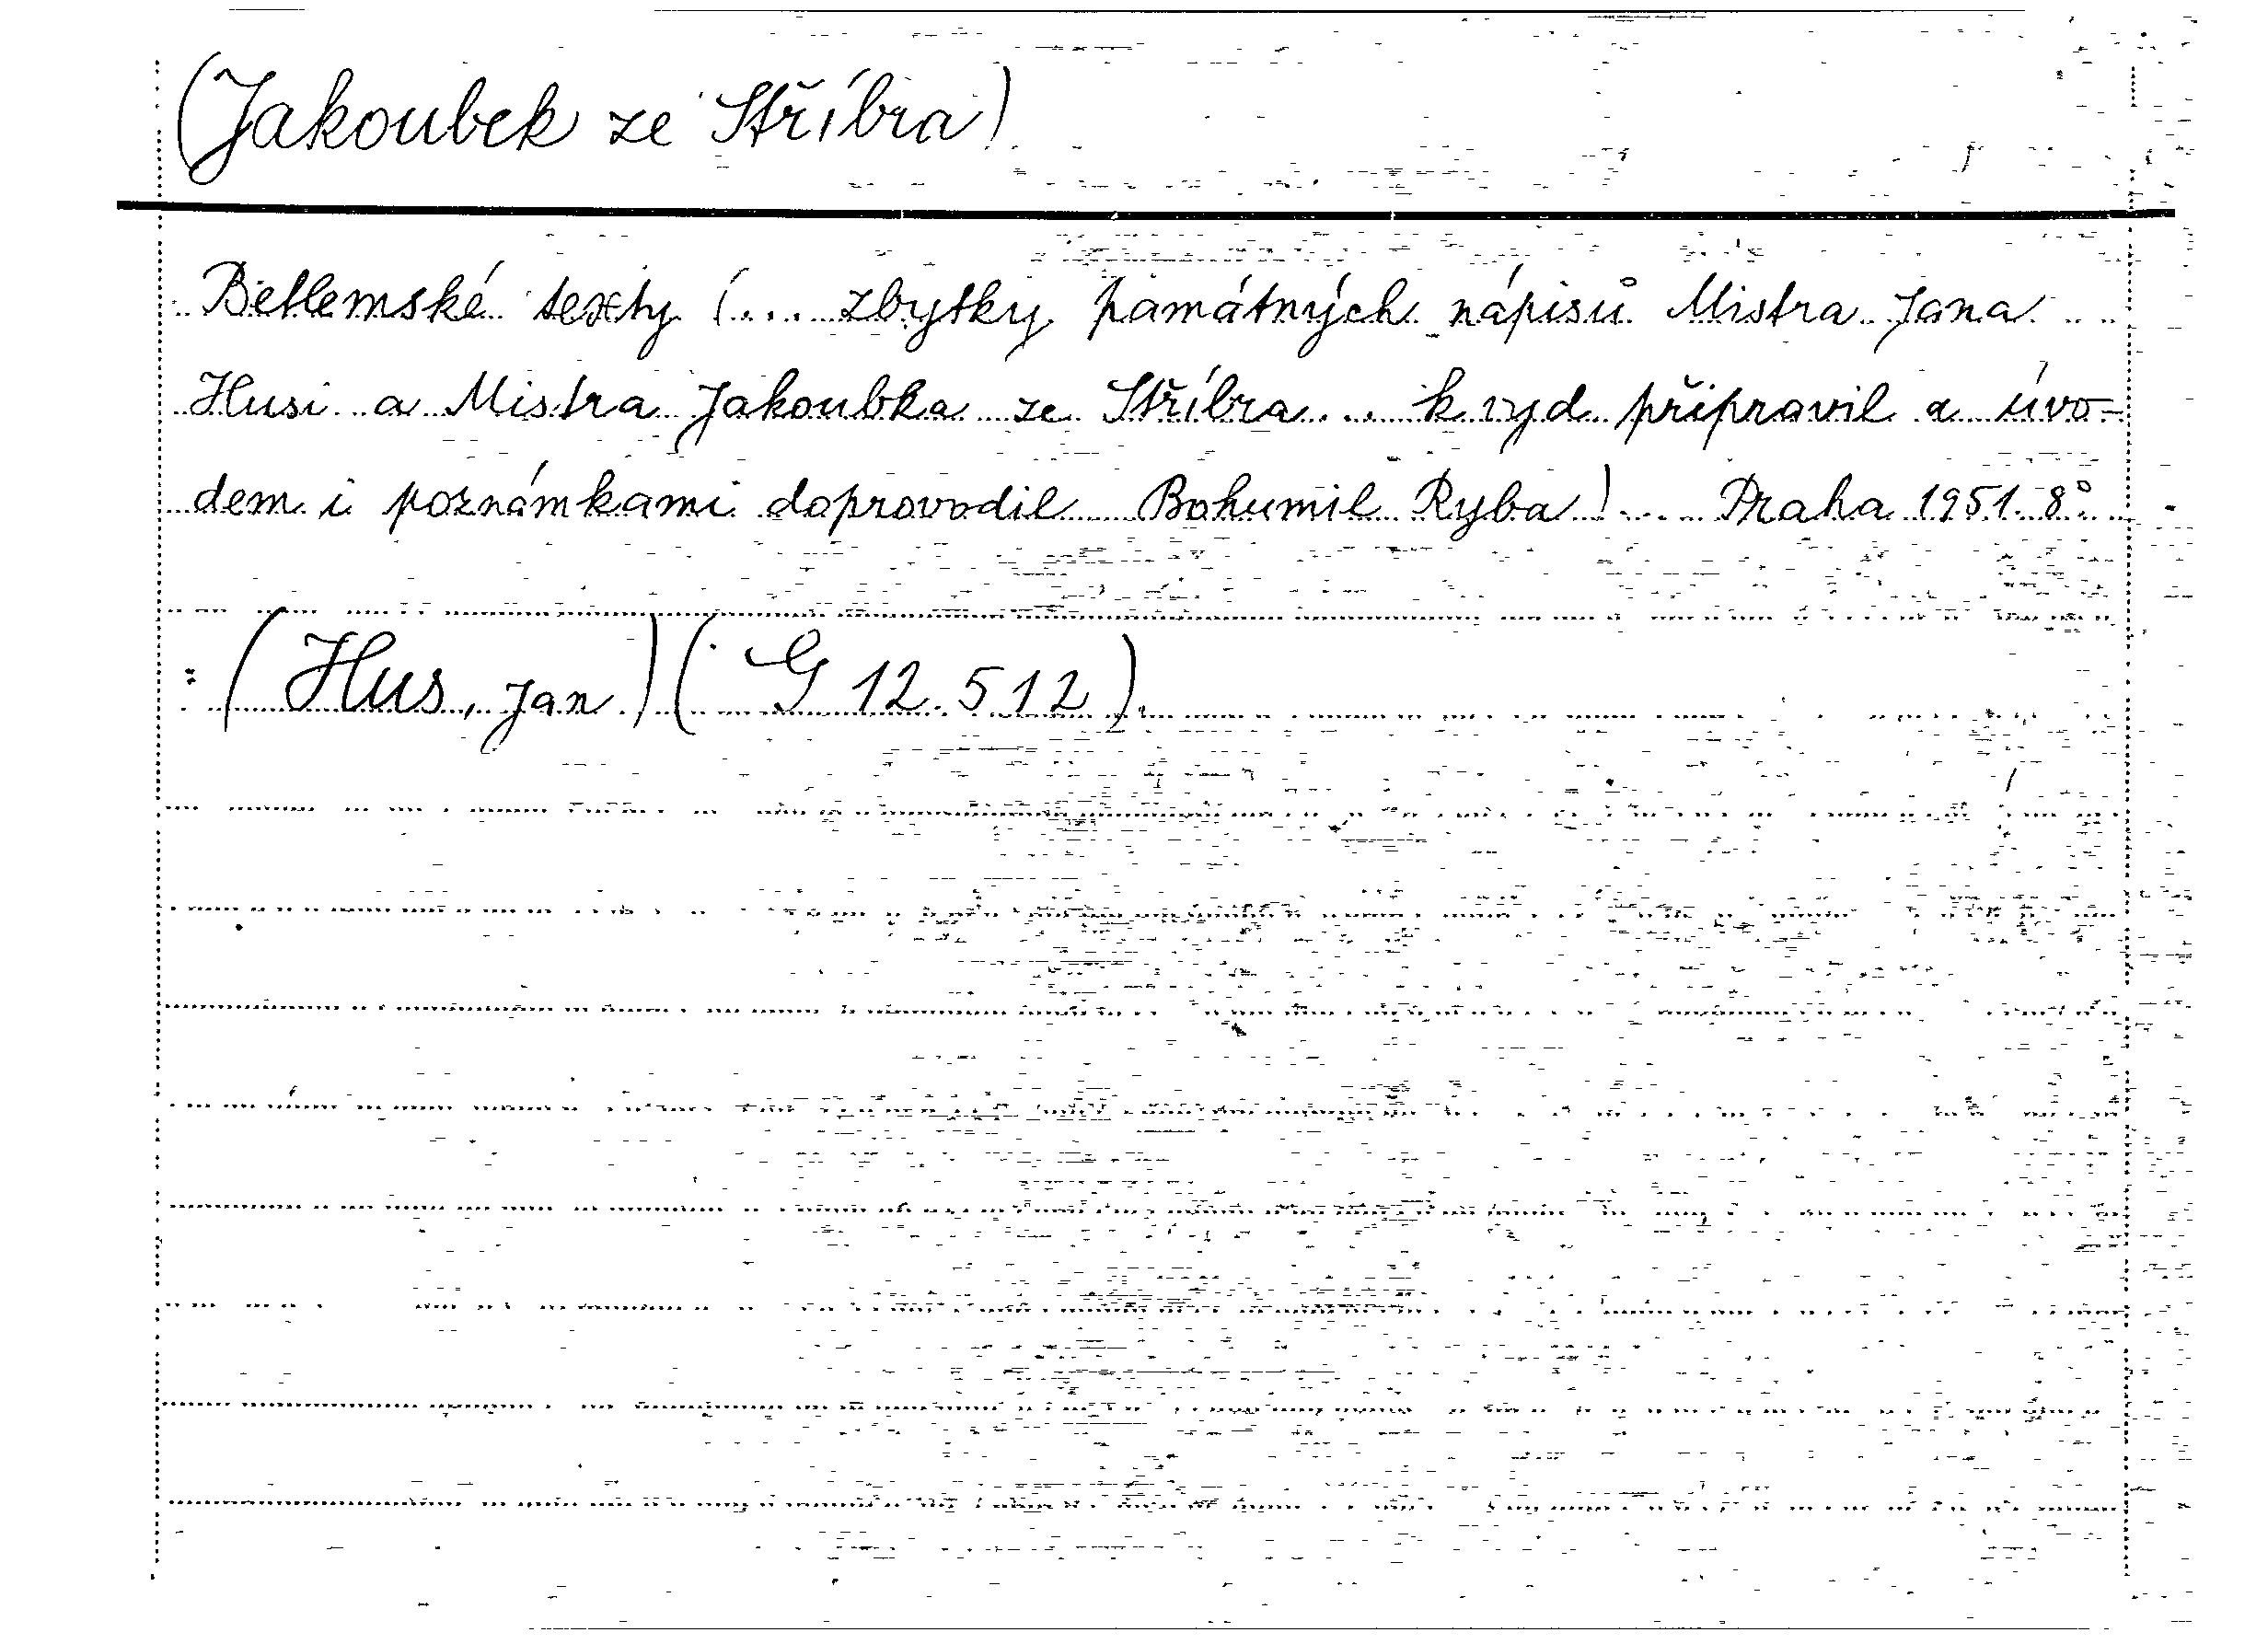 (Jakoubek ze Stříbra)
Betlemské texty (... zbytky památných nápisů Mistra Jana
Husi a Mistra Jakoubka ze Stříbra ... k vyd připravil a úvo-
dem i poznámkami doprovodil Bohumil Ryba) ... Praha 1951. 8°
: (Hus, Jan) (G 12.512).